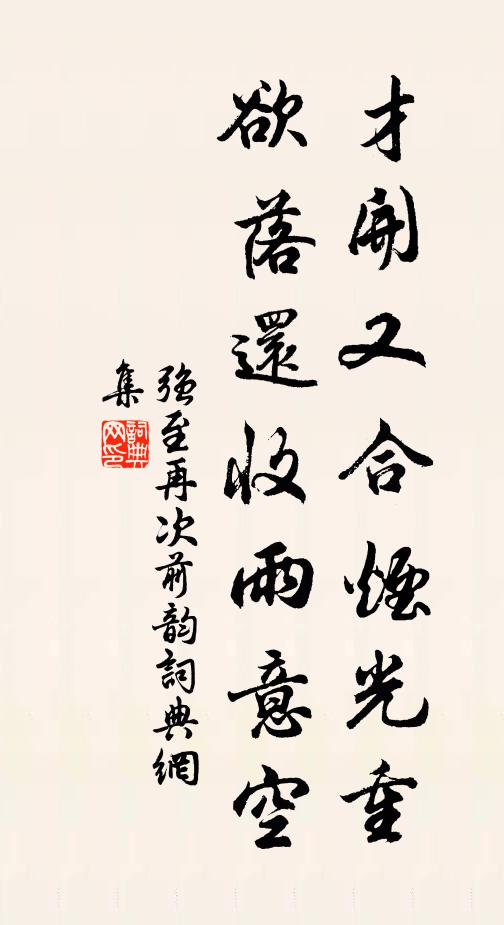 才開又合煙光重
欲落還收雨意空
强至再次前韵詞典網
集
詞典
网印